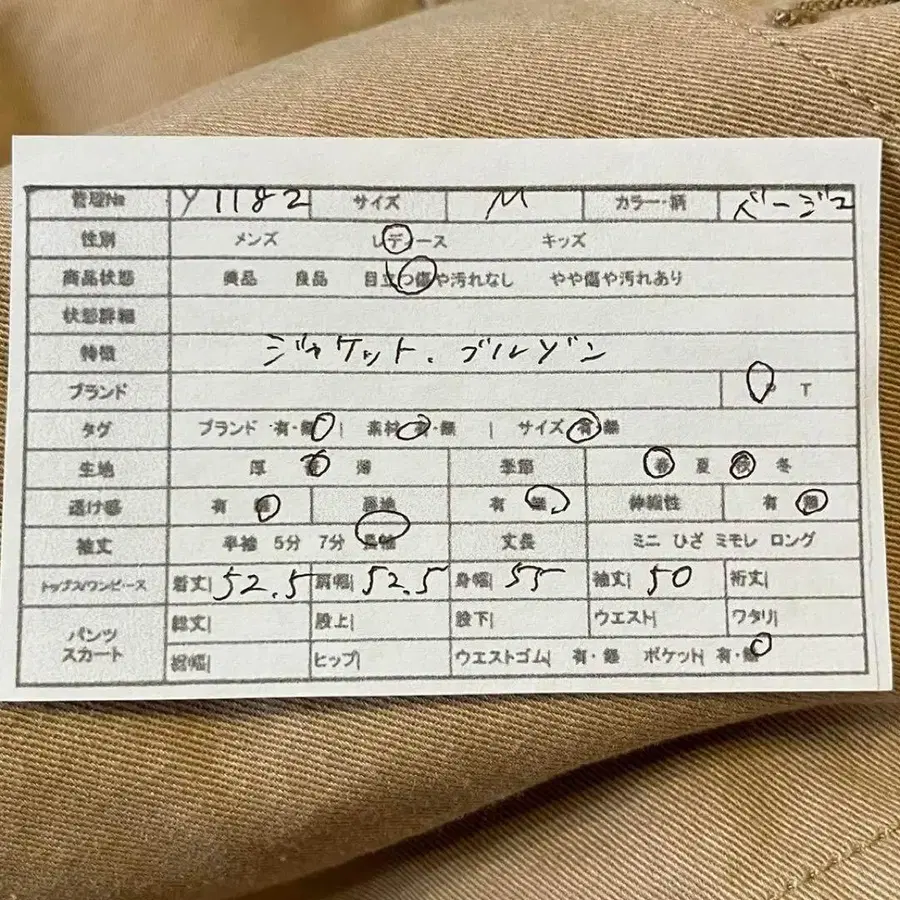 管理No Y1182 サイズ M カラー・柄 ベージュ
性別 メンズ レディース キッズ
商品状態 美品 良品 目立つ傷や汚れなし やや傷や汚れあり
状態詳細
特徴 ジャケット、ブルゾン
ブランド T
タグ ブランド 有・無 | 素材 有・無 | サイズ 有・無
生地 厚 薄 季節 春 夏 秋 冬
透け感 有 無 裏地 有 無 伸縮性 有 無
袖丈 半袖 5分 7分 長袖 丈長 ミニ ひざ ミモレ ロング
トップス/ワンピース 着丈 52.5 肩幅 52.5 身幅 55 袖丈 50 裄丈
パンツ スカート 総丈 股上 股下 ウエスト ワタリ
裾幅 ヒップ ウエストゴム 有・無 ポケット 有・無